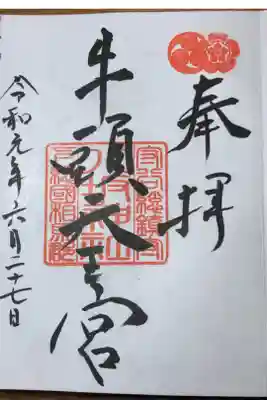 奉拝
牛頭天王宮
令和元年六月二十七日